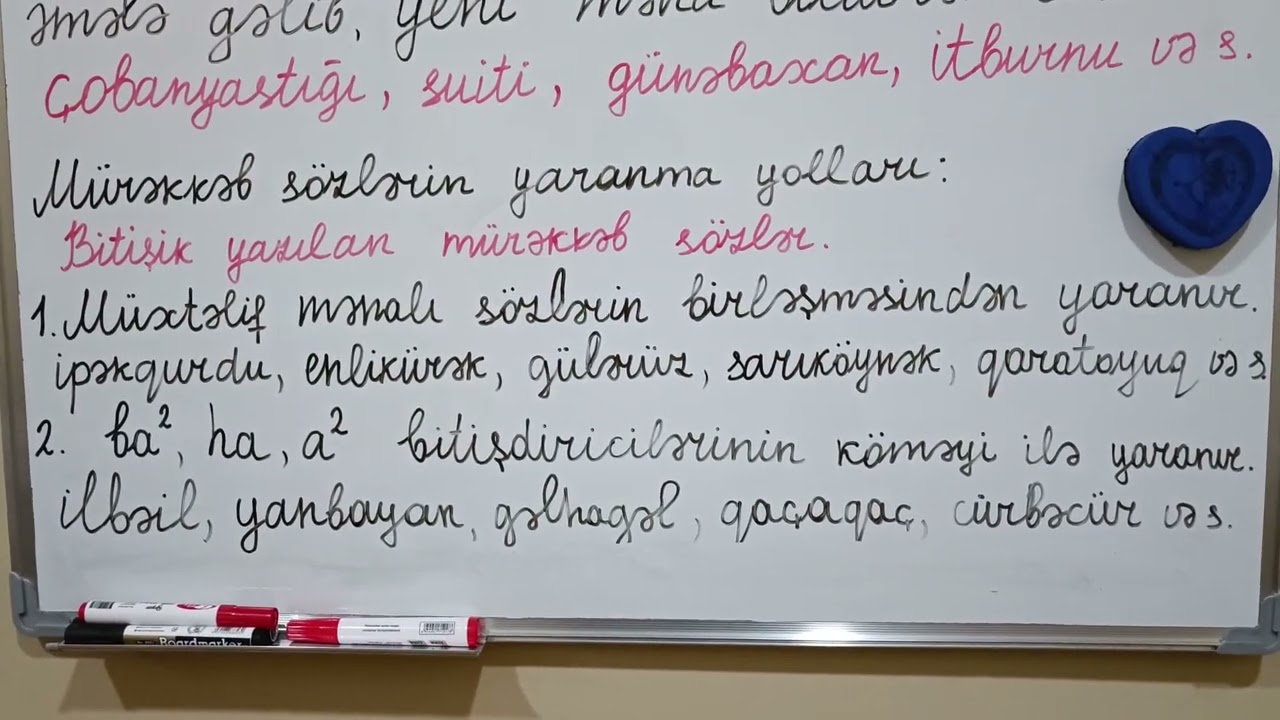 əmələ gəlib, yeni məna
Çobanyastığı, suiti, günəbaxan, itburnu və s.
Mürəkkəb sözlərin yaranma yolları:
Bitişik yazılan mürəkkəb sözlər.
1. Müxtəlif mənalı sözlərin birləşməsindən yaranır.
ipəkqurdu, enlikürək, gülərüz, sarıköynək, qaratoyuq və s
2. ba², ha, a² bitişdiricilərinin köməyi ilə yaranır.
ilbəil, yanbayan, gəlhagəl, qaçaqaç, cürbəcür və s.
Boardmarker